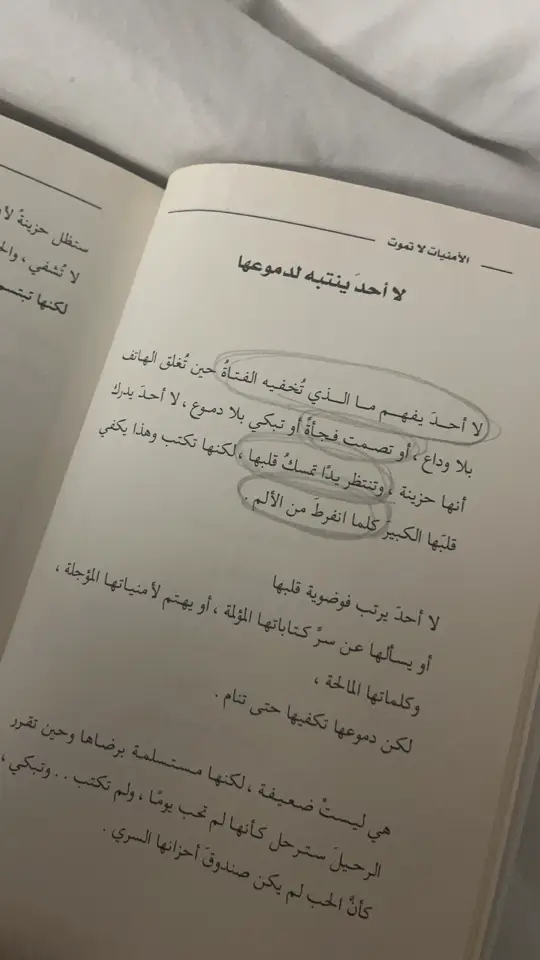 الأمنيات لا تموت
لا أحدَ ينتبه لدموعها
لا أحـدَ يفهـم مـا الـذي تُخفيه الفتاةُ حين تُغلق الهاتف
بلا وداع ، أو تصمت فجأةً أو تبكي بلا دموع ، لا أحدَ يدرك
أنها حزينة ، وتنتظر يدًا تمسكُ قلبها ، لكنها تكتب وهذا يكفي
قلبَها الكبيرَ كلما انفرطَ من الألم .
لا أحدَ يرتب فوضوية قلبها
أو يسألها عن سرِّ كتاباتها المؤلمة ، أو يهتم لأمنياتها المؤجلة ،
وكلماتها المالحة ،
لكن دموعها تكفيها حتى تنام .
هي ليستْ ضعيفة ، لكنها مستسلمة برضاها وحين تقرر
الرحيلَ سترحل كأنها لم تحب يومًا ، ولم تكتب . . وتبكي ،
كأنَّ الحب لم يكن صندوقَ أحزانها السري .
ستظل حزينةً
لا تُشفى ،
لكنها تبتسم